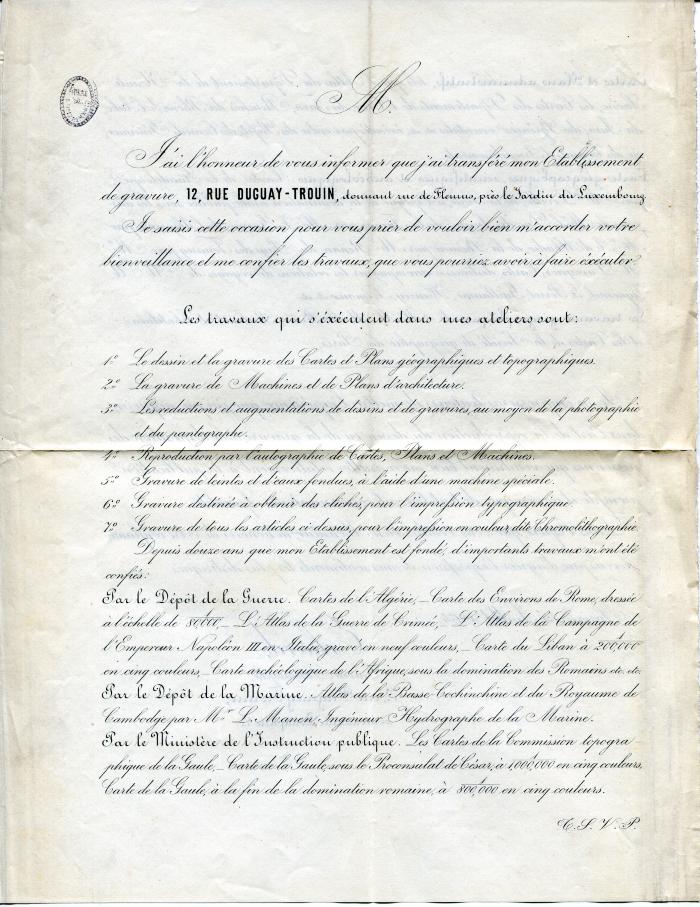 M.
J'ai l'honneur de vous informer que j'ai transféré mon Etablissement
de gravure, 12, RUE DUGUAY-TROUIN, donnant rue de Fleurus, près le Jardin du Luxembourg.
Je saisis cette occasion pour vous prier de vouloir bien m'accorder votre
bienveillance et me confier les travaux, que vous pourriez avoir à faire éxécuter.
Les travaux qui s'éxécutent dans mes ateliers sont:
1º Le dessin et la gravure des Cartes et Plans géographiques et topographiques.
2º La gravure de Machines et de Plans d'architecture.
3º Les réductions et augmentations de dessins et de gravures, au moyen de la photographie
et du pantographe.
4º Reproduction par l'autographie de Cartes, Plans et Machines.
5º Gravure de teintes et d'eaux fondues, à l'aide d'une machine spéciale.
6º Gravure destinée à obtenir des clichés, pour l'impression typographique.
7º Gravure de tous les articles ci dessus, pour l'impression en couleur, dite Chromolithographie.
Depuis douze ans que mon Etablissement est fondé, d'importants travaux m'ont été
confiés:
Par le Dépôt de la Guerre. Cartes de l'Algérie,_ Carte des Environs de Rome, dressée
à l'échelle de 1/80,000,_ L'Atlas de la Guerre de Crimée,_ L'Atlas de la Campagne de
l'Empereur Napoléon III en Italie, gravé en neuf couleurs,_ Carte du Liban à 1/200,000
en cinq couleurs,_ Carte archéologique de l'Afrique, sous la domination des Romains etc. etc.
Par le Dépôt de la Marine. Atlas de la Basse Cochinchine et du Royaume de
Cambodge par Mr L. Manen, Ingénieur Hydrographe de la Marine.
Par le Ministère de l'Instruction publique. Les Cartes de la Commission topogra
phique de la Gaule,_ Carte de la Gaule, sous le Proconsulat de César, à 1/1,600,000 en cinq couleurs,
Carte de la Gaule, à la fin de la domination romaine, à 1/800,000 en cinq couleurs.
T.S.V.P.